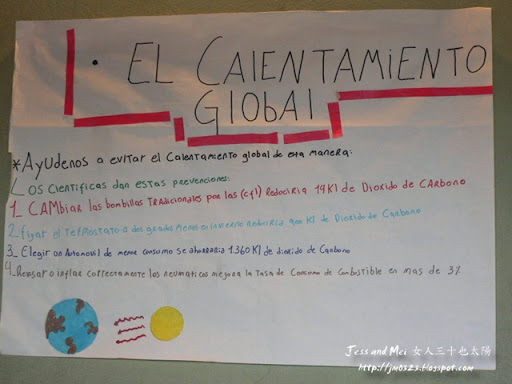 • EL CAlENTAMiENTO
GlObAl
*AYUdenos a evitar el Calentamiento global de esta manera:
LOS Cientificas dan estas prevenciones:
1_ CAMbiar las bombillas Tradicionales por las (cfl) Reduciria 19Kl de Dioxido de CARbono
2_ fijar el Termostato a dos grados menos en invierno reduciria 900 Kl de Dioxido de Carbono
3_ Elegir un Automovil de menor consumo se ahorraria 1.360 Kl de dioxido de Carbono
4_ Revisar o inflar correctamente los neumaticos mejora la Tasa de Consumo de Combustible en mas de 3%
Jess and Mei 女人三十也太陽
http://jm0523.blogspot.com